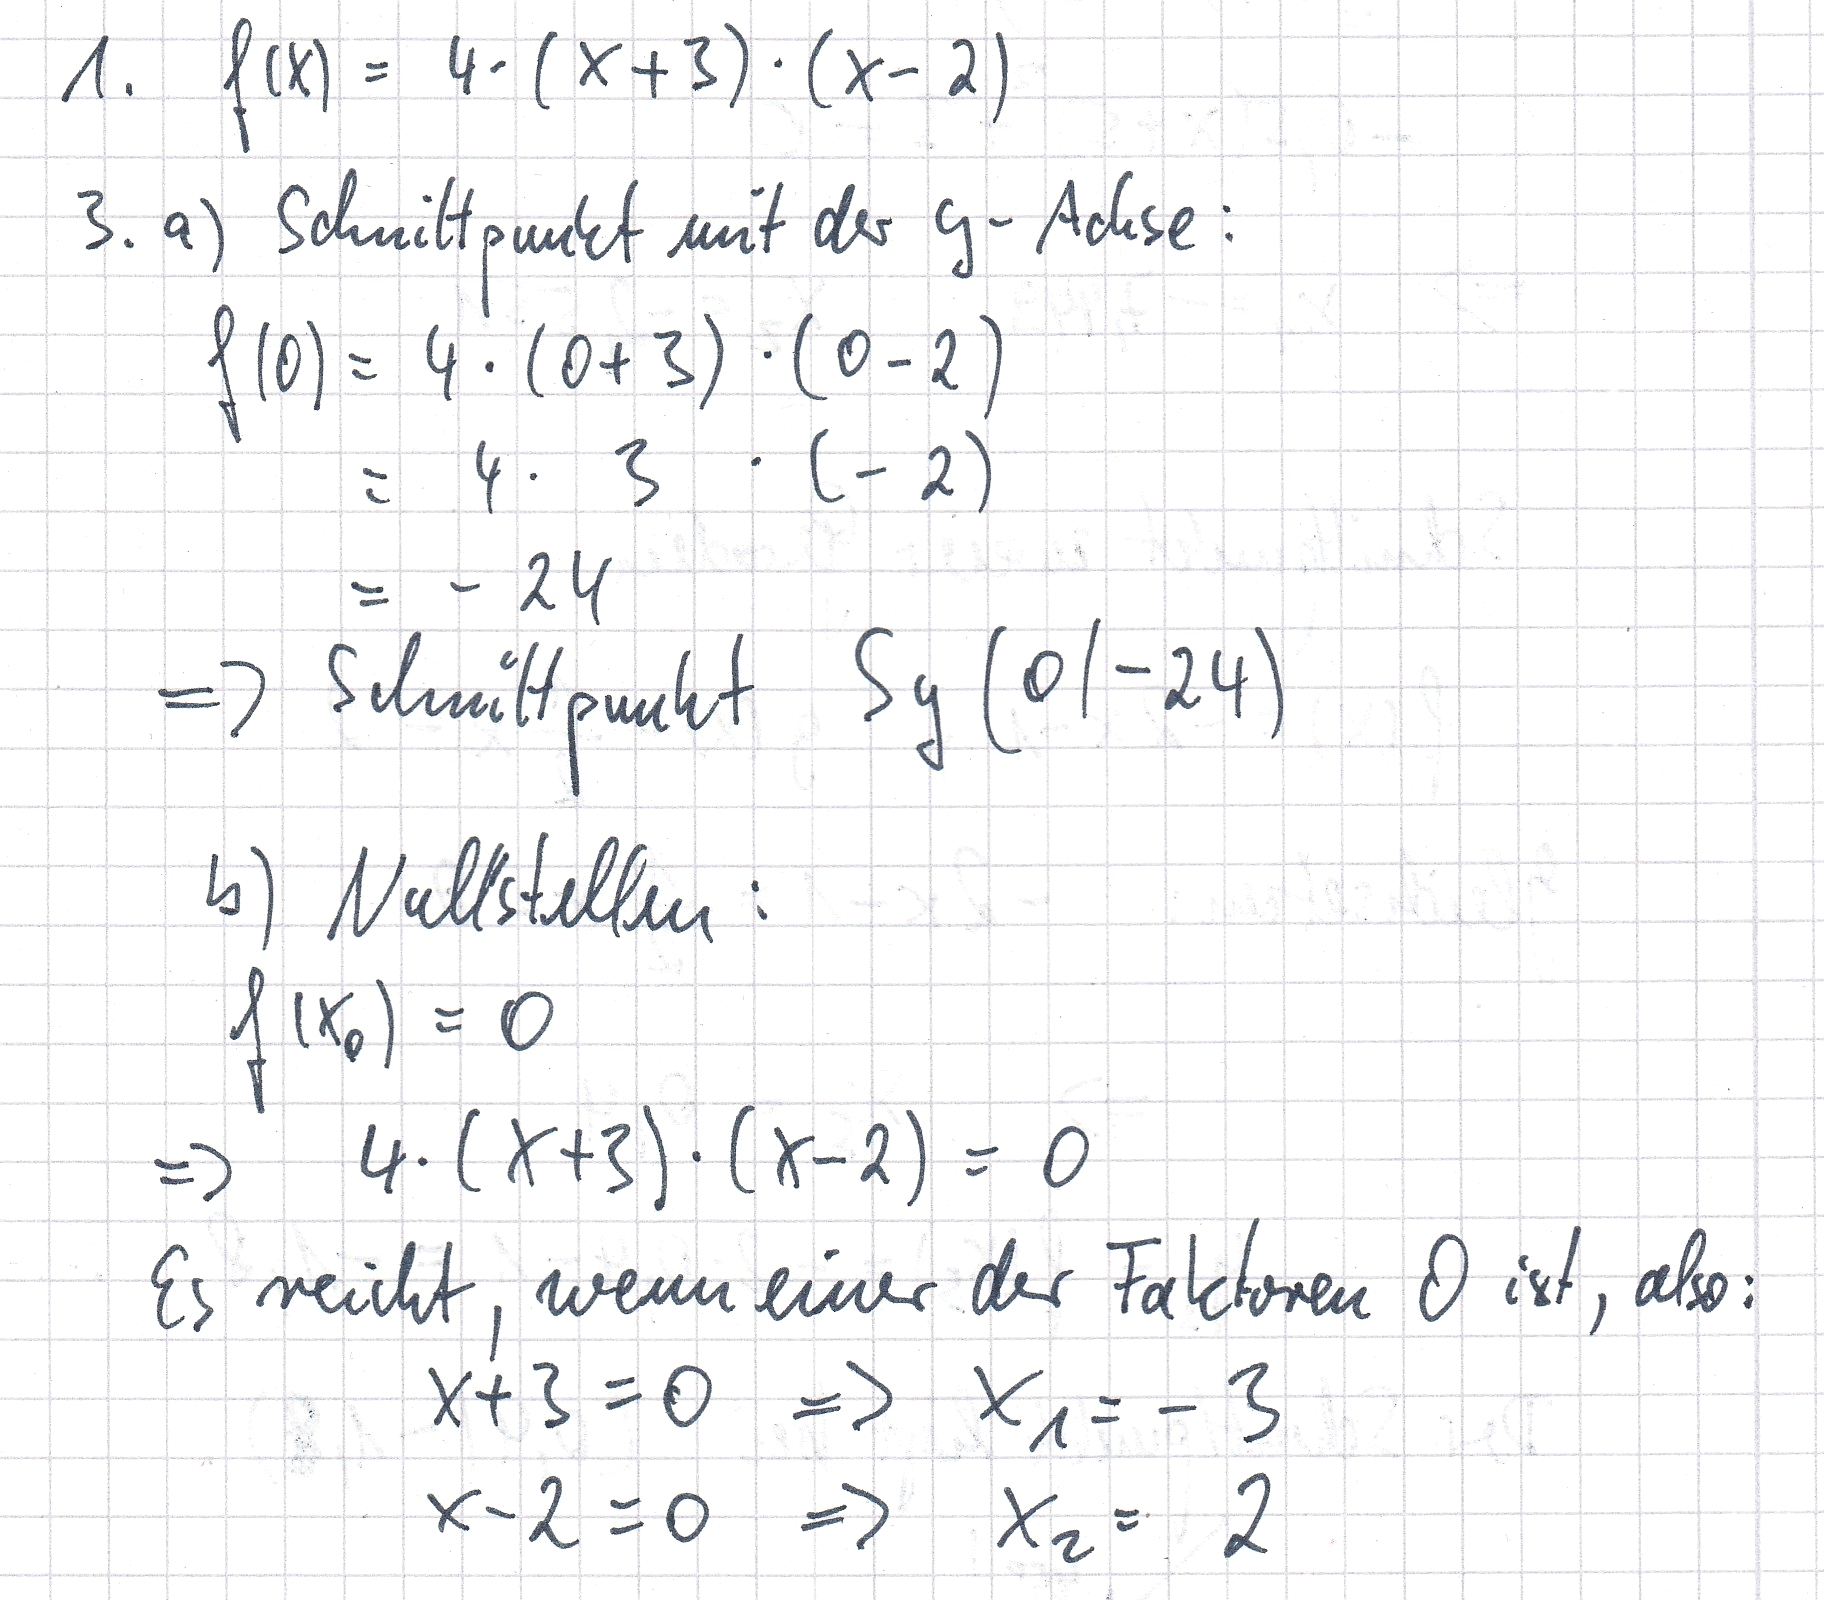 1. f(x) = 4·(x+3)·(x-2)
3. a) Schnittpunkt mit der y-Achse:
f(0) = 4·(0+3)·(0-2)
= 4· 3 ·(-2)
= -24
=> Schnittpunkt Sy(0|-24)
b) Nullstellen:
f(x₀) = 0
=> 4·(x+3)·(x-2) = 0
Es reicht, wenn einer der Faktoren 0 ist, also:
x+3=0 => x₁=-3
x-2=0 => x₂= 2